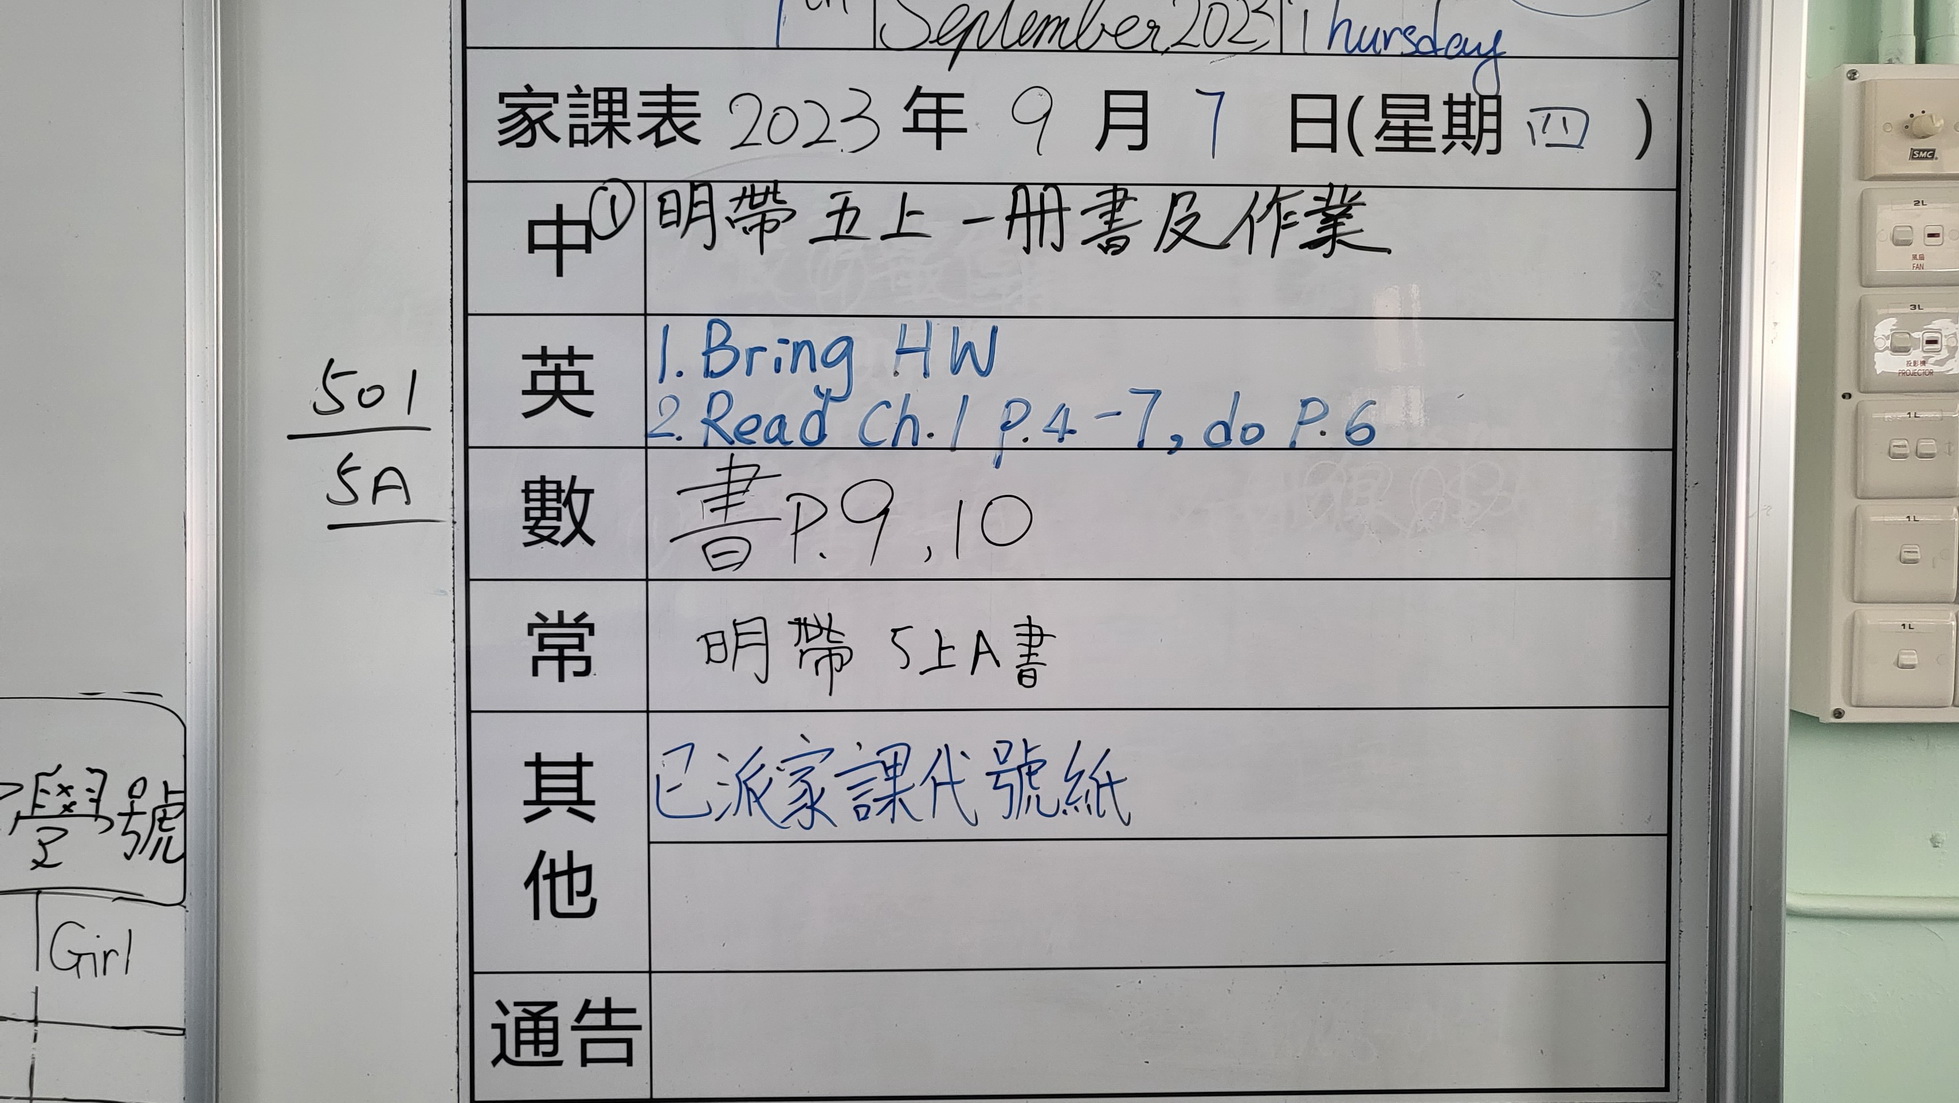 7th September 2023 Thursday
家課表 2023 年 9 月 7 日(星期 四 )
中 ① 明帶五上一册書及作業
英 1. Bring HW
2. Read Ch.1 p.4-7, do P.6
數 書P.9,10
常 明帶 5上A書
其他 已派家課代號紙
通告
501
5A
學號
Girl
SMC
2L
風扇
FAN
3L
投影機
PROJECTOR
1L
1L
1L